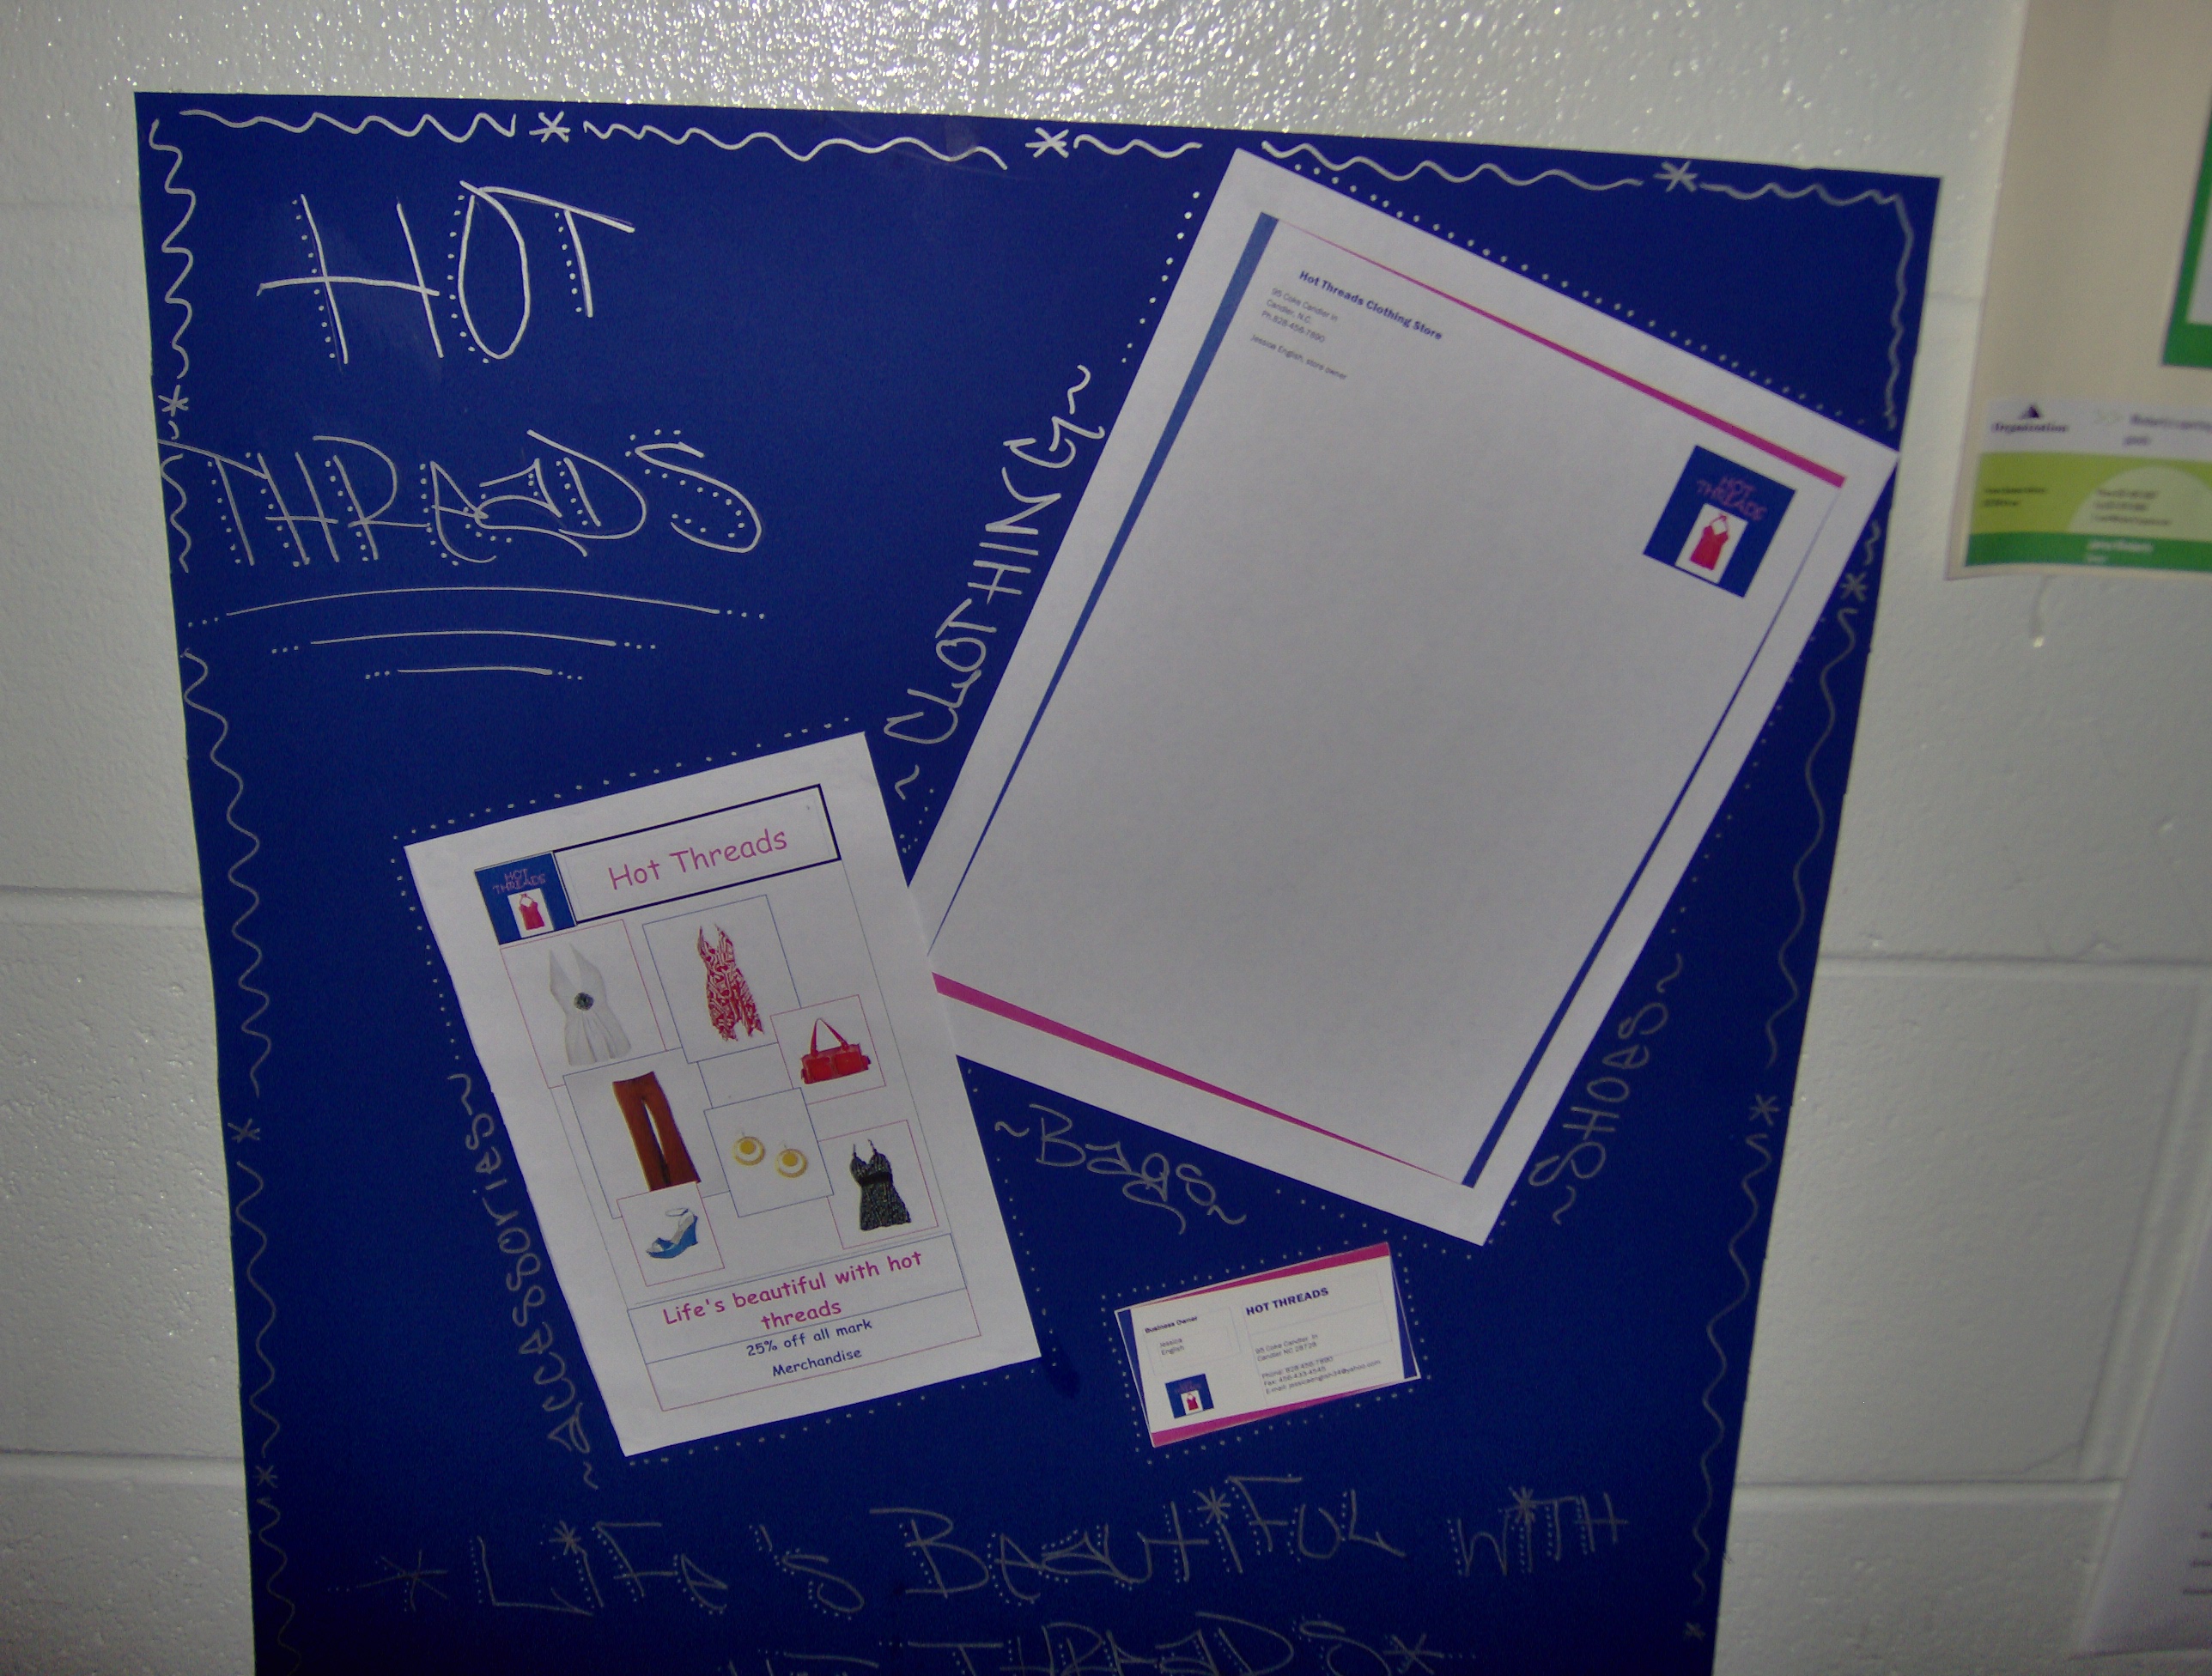 HOT
THREADS
~CLOTHING~
Hot Threads Clothing Store
95 Coke Candler ln
Candler, N.C.
Ph.828-456-7890
Jessica English, store owner
HOT
THREADS
Hot Threads
HOT
THREADS
Life's beautiful with hot
threads
25% off all mark
Merchandise
~ACCESSORIES~
~Bags~
~SHOES~
Business Owner
Jessica
English
HOT THREADS
95 Coke Candler. ln
Candler NC 28728
Phone: 828-456-7890
Fax: 456-433-4545
E-mail: jessicaenglish34@yahoo.com
*LiFe's BeautiFuL WiTH
THREADS*
Organization